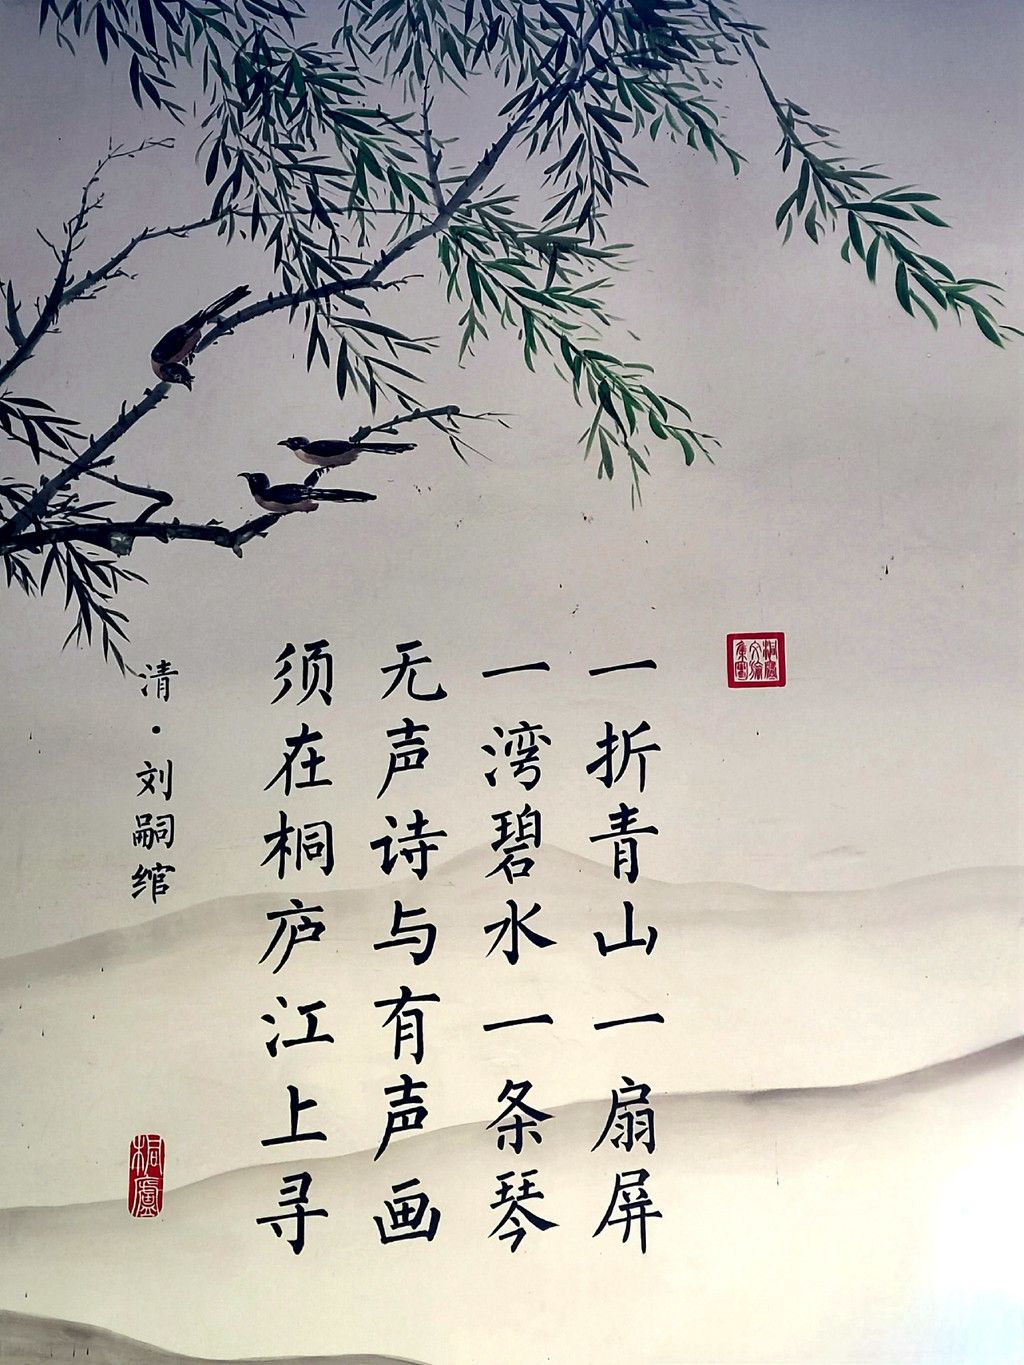 一折青山一扇屏
一湾碧水一条琴
无声诗与有声画
须在桐庐江上寻
清·刘嗣绾
桐廬